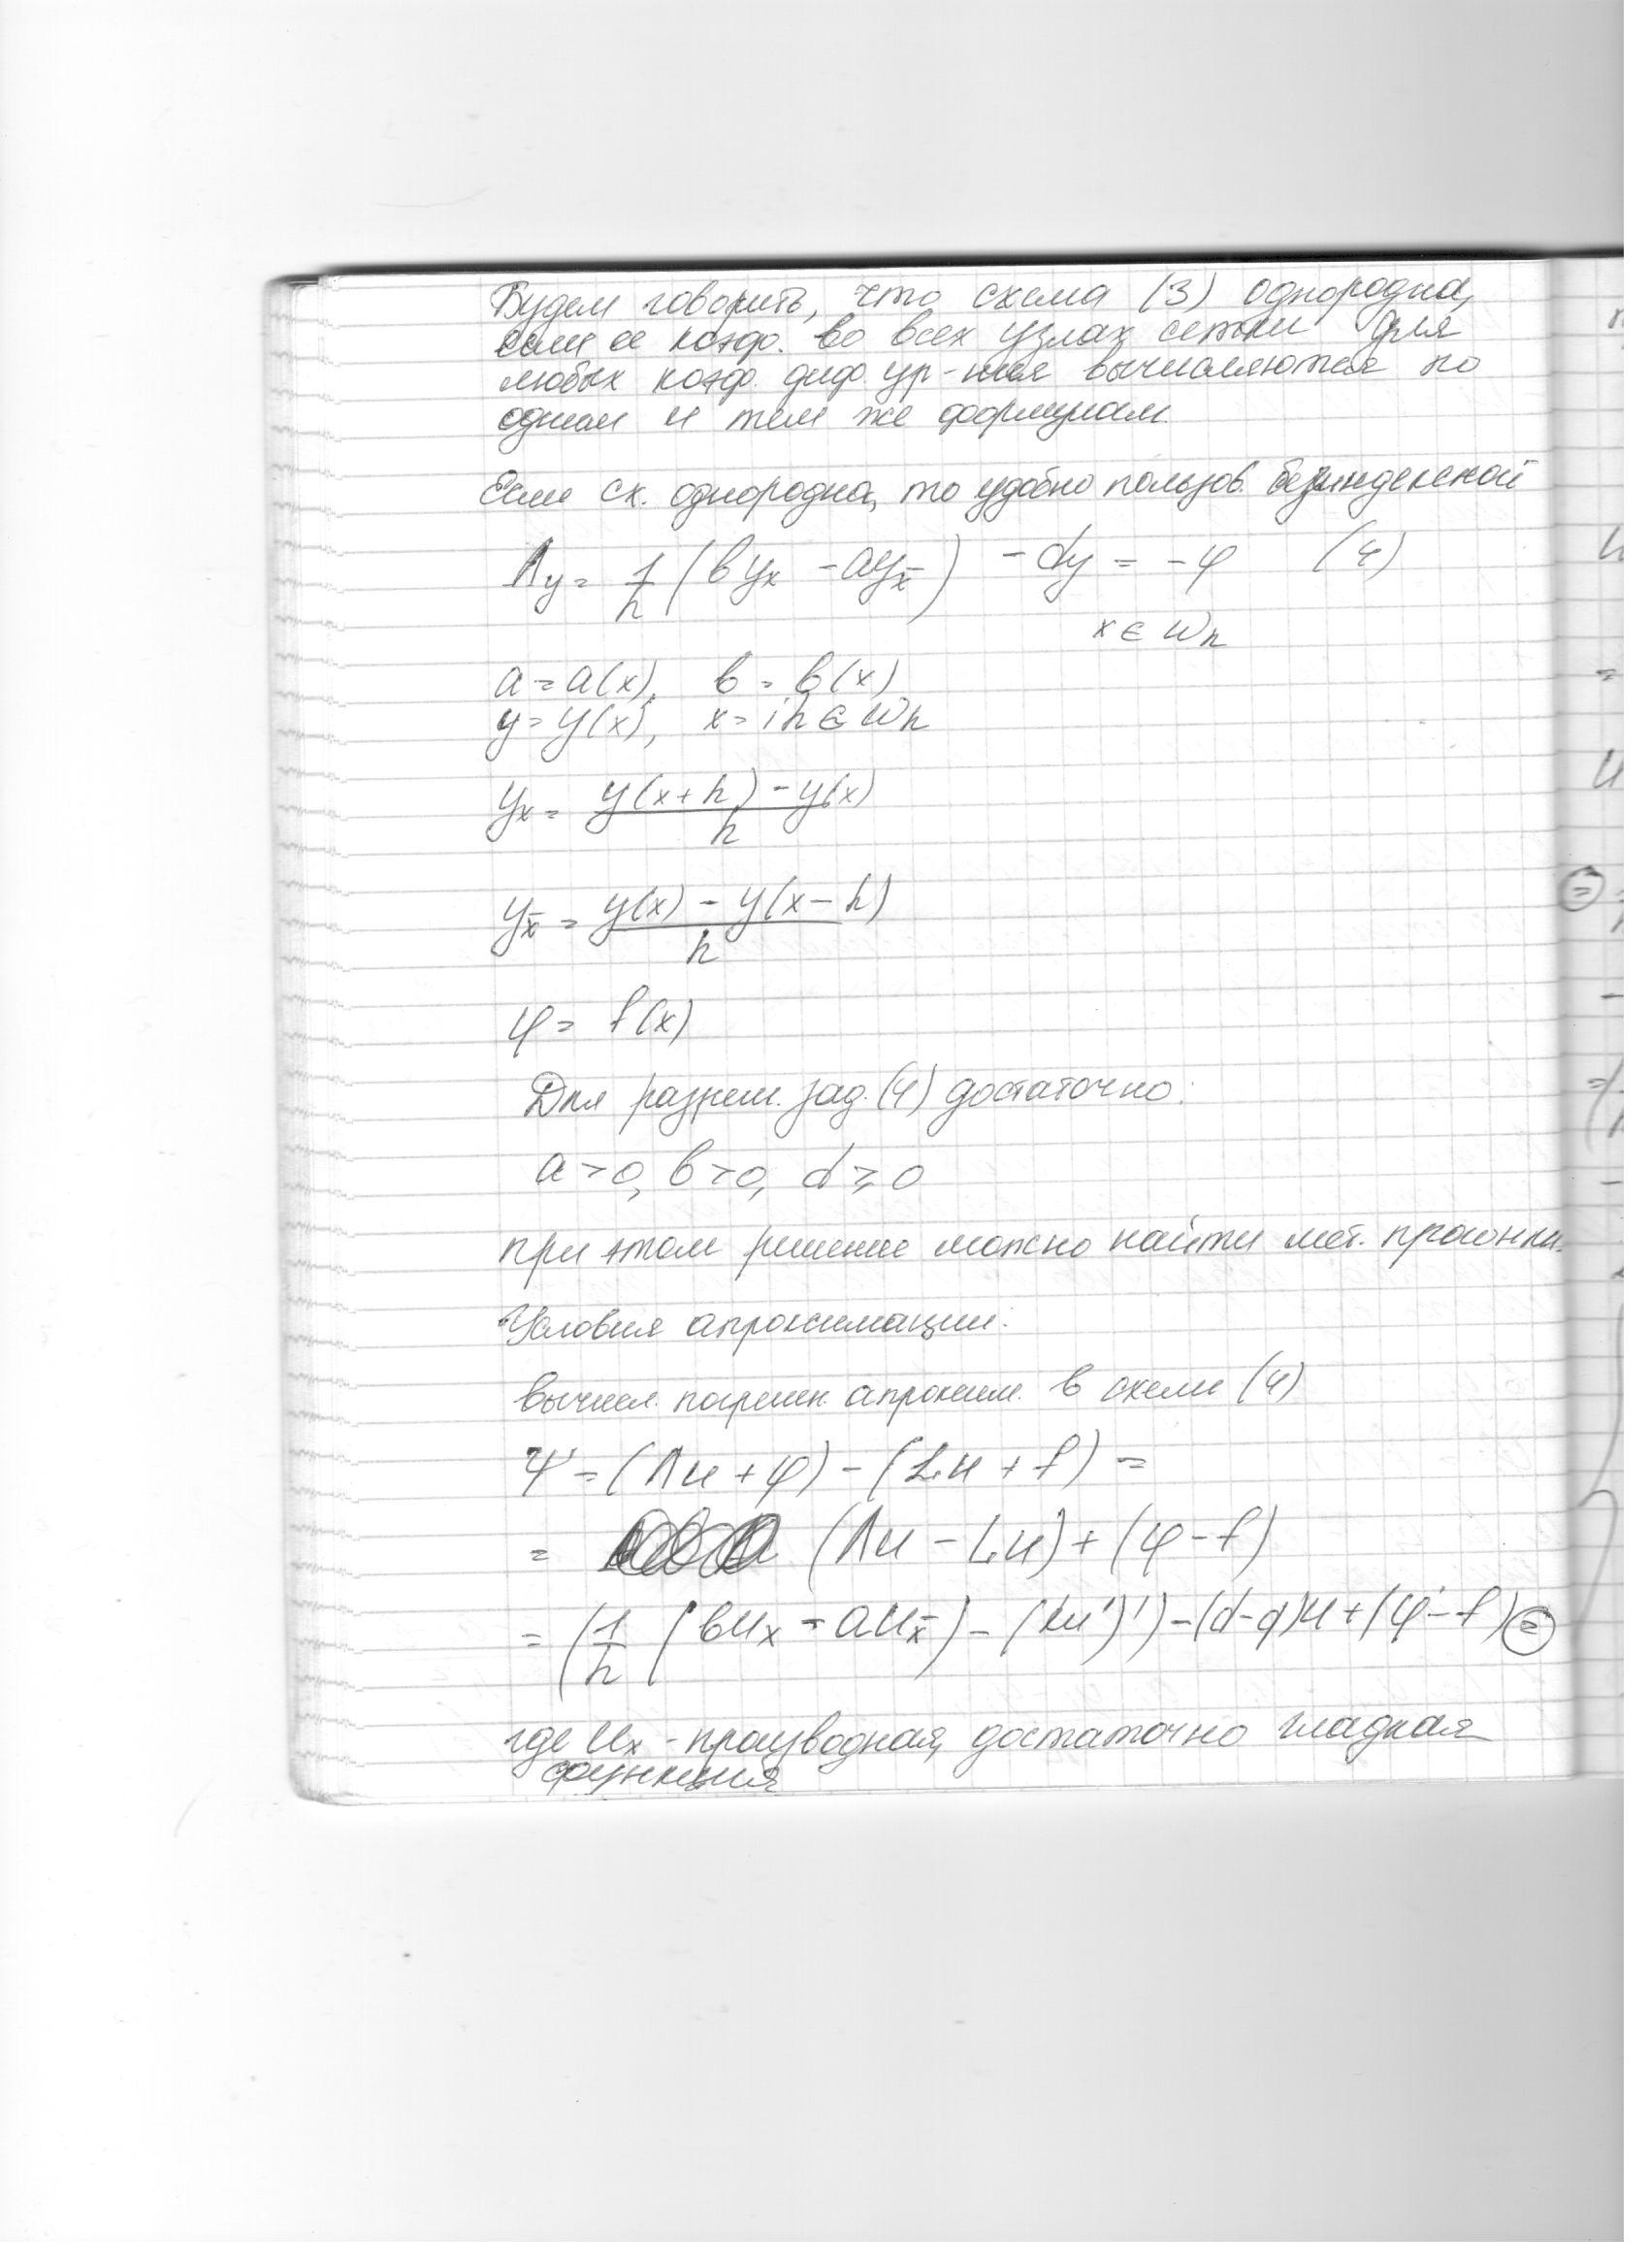 Будем говорить, что схема (3) однородна,
если ее коэф. во всех узлах сетки для
любых коэф. диф. ур-ния вычисляются по
одним и тем же формулам.
Если сх. однородна, то удобно пользов. безиндексной
Λy = 1/h (вy_x - ay_x̄) - dy = -φ (4)
x ∈ ω_h
a = a(x), в = в(x)
y = y(x), x = ih ∈ ω_h
y_x = (y(x+h) - y(x))/h
y_x̄ = (y(x) - y(x-h))/h
φ = f(x)
Для разреш. зад. (4) достаточно:
a > 0, в > 0, d ≥ 0
при этом решение можно найти мет. прогонки.
Условия апроксимации:
вычисл. погрешн. апроксим. в схеме (4)
Ψ = (Λu + φ) - (Lu + f) =
= (Λu - Lu) + (φ - f)
= (1/h (вu_x - au_x̄) - (ku')') - (d-q)u + (φ - f) =
где u_x - производная, достаточно гладкая
функция